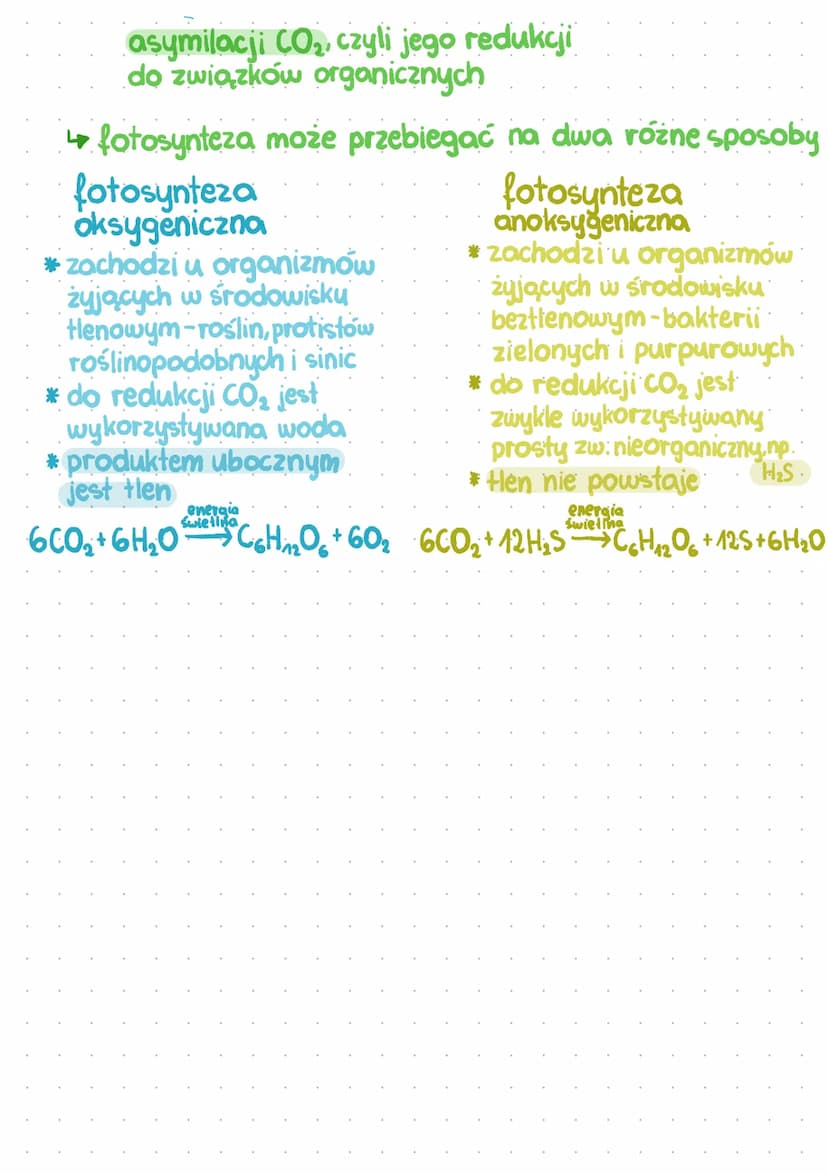 asymilacji CO₂, czyli jego redukcji
do związków organicznych
↳ fotosynteza może przebiegać na dwa różne sposoby
fotosynteza
oksygeniczna
* zachodzi u organizmów
żyjących w środowisku
tlenowym - roślin, protistów
roślinopodobnych i sinic
* do redukcji CO₂ jest
wykorzystywana woda
* produktem ubocznym
jest tlen
energia
świetlna
6CO₂ + 6H₂O → C₆H₁₂O₆ + 6O₂
fotosynteza
anoksygeniczna
* zachodzi u organizmów
żyjących w środowisku
beztlenowym - bakterii
zielonych i purpurowych
* do redukcji CO₂ jest
zwykle wykorzystywany
prosty zw. nieorganiczny, np.
H₂S
* tlen nie powstaje
energia
świetlna
6CO₂ + 12H₂S → C₆H₁₂O₆ + 12S + 6H₂O